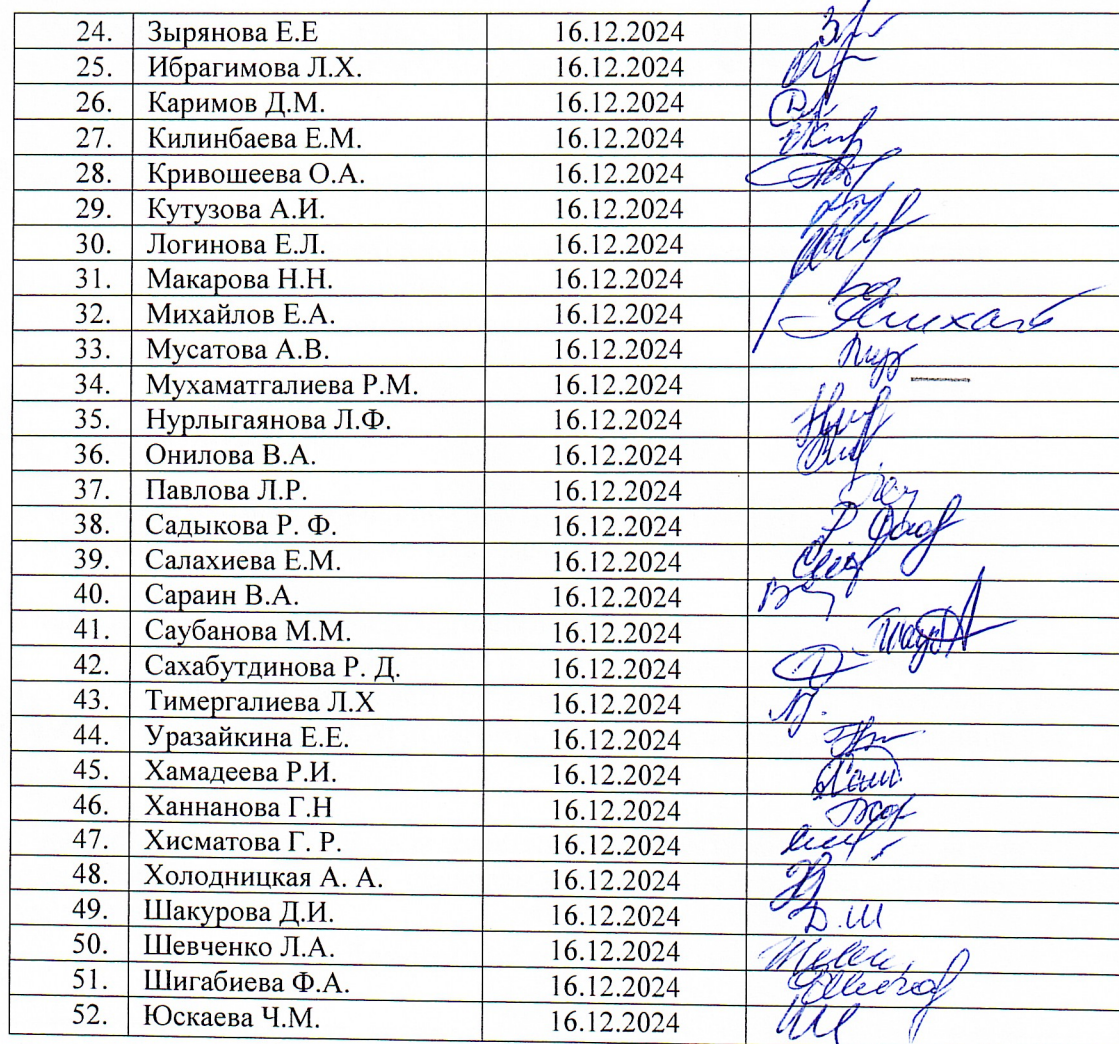 24. Зырянова Е.Е 16.12.2024
25. Ибрагимова Л.Х. 16.12.2024
26. Каримов Д.М. 16.12.2024
27. Килинбаева Е.М. 16.12.2024
28. Кривошеева О.А. 16.12.2024
29. Кутузова А.И. 16.12.2024
30. Логинова Е.Л. 16.12.2024
31. Макарова Н.Н. 16.12.2024
32. Михайлов Е.А. 16.12.2024
33. Мусатова А.В. 16.12.2024
34. Мухаматгалиева Р.М. 16.12.2024
35. Нурлыгаянова Л.Ф. 16.12.2024
36. Онилова В.А. 16.12.2024
37. Павлова Л.Р. 16.12.2024
38. Садыкова Р. Ф. 16.12.2024
39. Салахиева Е.М. 16.12.2024
40. Сараин В.А. 16.12.2024
41. Саубанова М.М. 16.12.2024
42. Сахабутдинова Р. Д. 16.12.2024
43. Тимергалиева Л.Х 16.12.2024
44. Уразайкина Е.Е. 16.12.2024
45. Хамадеева Р.И. 16.12.2024
46. Ханнанова Г.Н 16.12.2024
47. Хисматова Г. Р. 16.12.2024
48. Холодницкая А. А. 16.12.2024
49. Шакурова Д.И. 16.12.2024 Д.Ш
50. Шевченко Л.А. 16.12.2024
51. Шигабиева Ф.А. 16.12.2024
52. Юскаева Ч.М. 16.12.2024